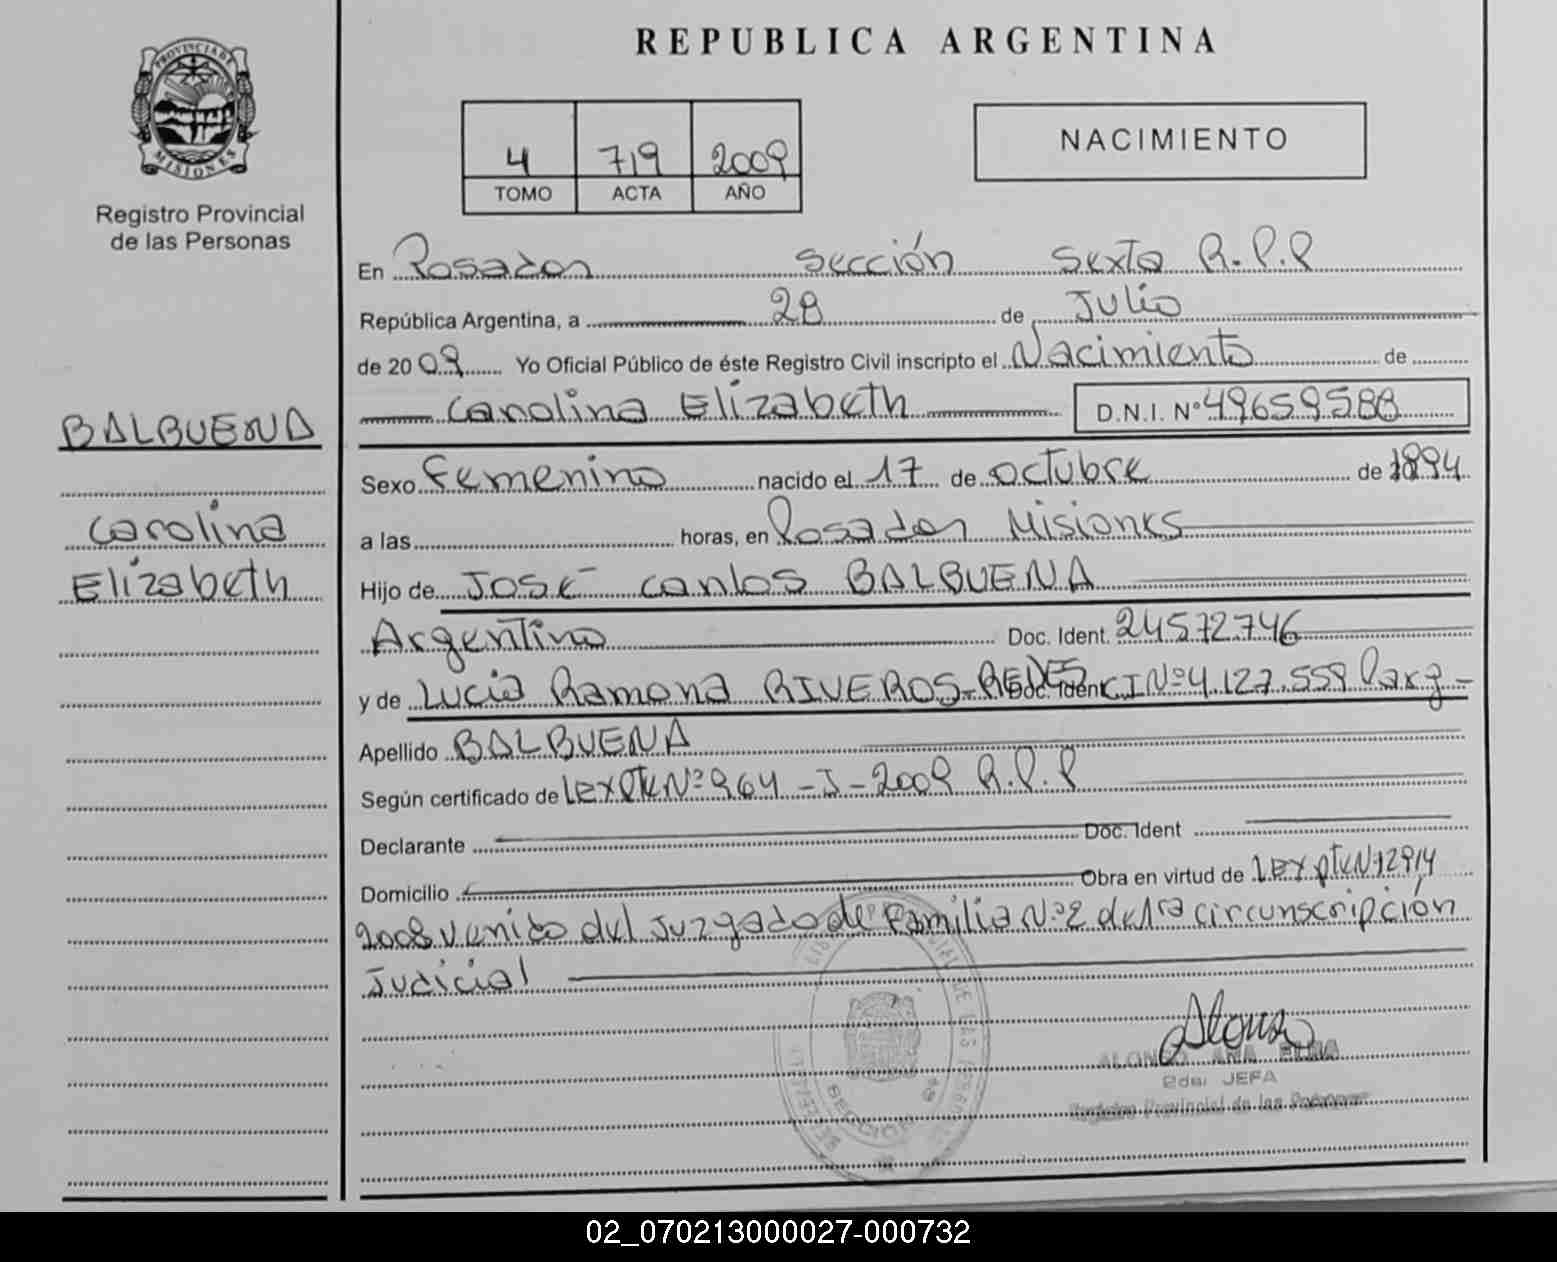 REPUBLICA ARGENTINA
PROVINCIA DE MISIONES
Registro Provincial
de las Personas
4 719 2009
TOMO ACTA AÑO
NACIMIENTO
En Posadas Sección Sexta R.P.P
República Argentina, a 28 de Julio
de 2009 Yo Oficial Público de éste Registro Civil inscripto el Nacimiento de
Carolina Elizabeth D.N.I. Nº 49659588
BALBUENA
Carolina
Elizabeth
Sexo Femenino nacido el 17 de octubre de 1994
a las horas, en Posadas Misiones
Hijo de José Carlos BALBUENA
Argentino Doc. Ident. 24572746
y de Lucia Ramona RIVEROS REYES Doc. Ident CI Nº 4.127.559 Parg-
Apellido BALBUENA
Según certificado de Expte Nº 964-J-2009 R.P.P
Declarante Doc. Ident
Domicilio Obra en virtud de Expte Nº 12914
2008 venido del Juzgado de Familia Nº 2 de 1ra circunscripción
Judicial
Alonso
ALONSO ANA ELBA
2da. JEFA
Registro Provincial de las Personas
SECCION 6a
02_070213000027-000732